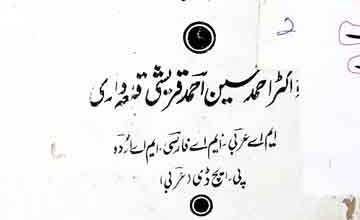 2
ڈاکٹر احمد حسین احمد قریشی قلعہ داری
ایم اے عربی - ایم اے فارسی - ایم اے اردو
پی - ایچ ڈی (عربی)